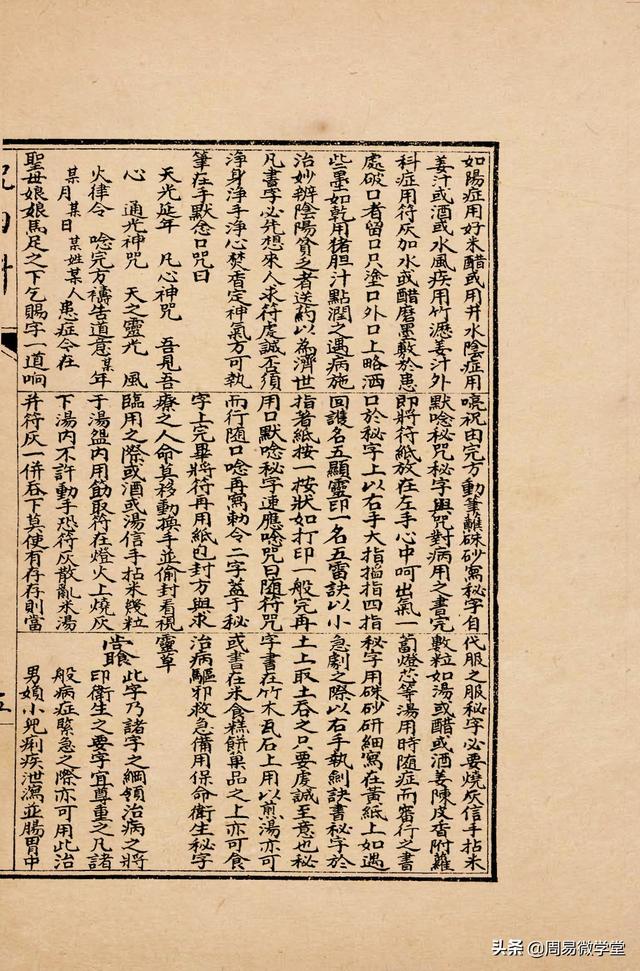 如陽症用好米醋或用井水陰症用
姜汁或酒或水風疾用竹瀝姜汁外
科症用符灰加水或醋磨墨敷於患
處破口者留口只塗口外口上略洒
些墨如乾用猪胆汁點潤之遇病施
治妙辨陰陽貧乏者送药以為濟世
凡書字必先想來人求符虔誠否須
淨身淨手淨心焚香定神氣方可執
筆在手默念口咒曰
天光延年 凡心神咒 吾見吾
心 通光神咒 天之靈光 風
火律令 唸完方禱告道意某年
某月某日某姓某人患症今在
聖母娘娘馬足之下乞賜字一道响
喨祝由完方動筆蘸硃砂寫秘字自
默唸秘咒秘字與咒對病用之書完
即將符紙放在左手心中呵出氣一
口於秘字上以右手大指搯指四指
回護名五顯靈印一名五雷訣以小
指著紙按一按狀如打印一般完再
用口默唸秘字速應唸咒曰随符咒
而行随口唸再寫勅令二字蓋于秘
字上完畢將符再用紙包封方與求
療之人命莫移動換手並偷封看視
臨用之際或酒或湯信手拈米幾粒
于湯盌内用筯取符在燈火上燒灰
下湯内不許動手恐符灰散亂米湯
并符灰一併吞下莫使有存存則當
代服之服秘字必要燒灰信手拈米
數粒如湯或醋或酒姜陳皮香附蘿
蔔燈芯等湯用時随症而審行之書
秘字用硃砂研細寫在黄紙上如遇
急劇之際以右手執劍訣書秘字於
土上取土吞之只要虔誠至意也秘
字書在竹木瓦石上用以煎湯亦可
或書在米食糕餅菓品之上亦可食
治病驅邪救急備用保命衛生秘字
靈草
此字乃諸字之綱領治病之將
印衛生之要字宜尊重之凡諸
般病症緊急之際亦可用此治
男婦小兒痢疾泄瀉並腸胃中
头条 @周易微学堂